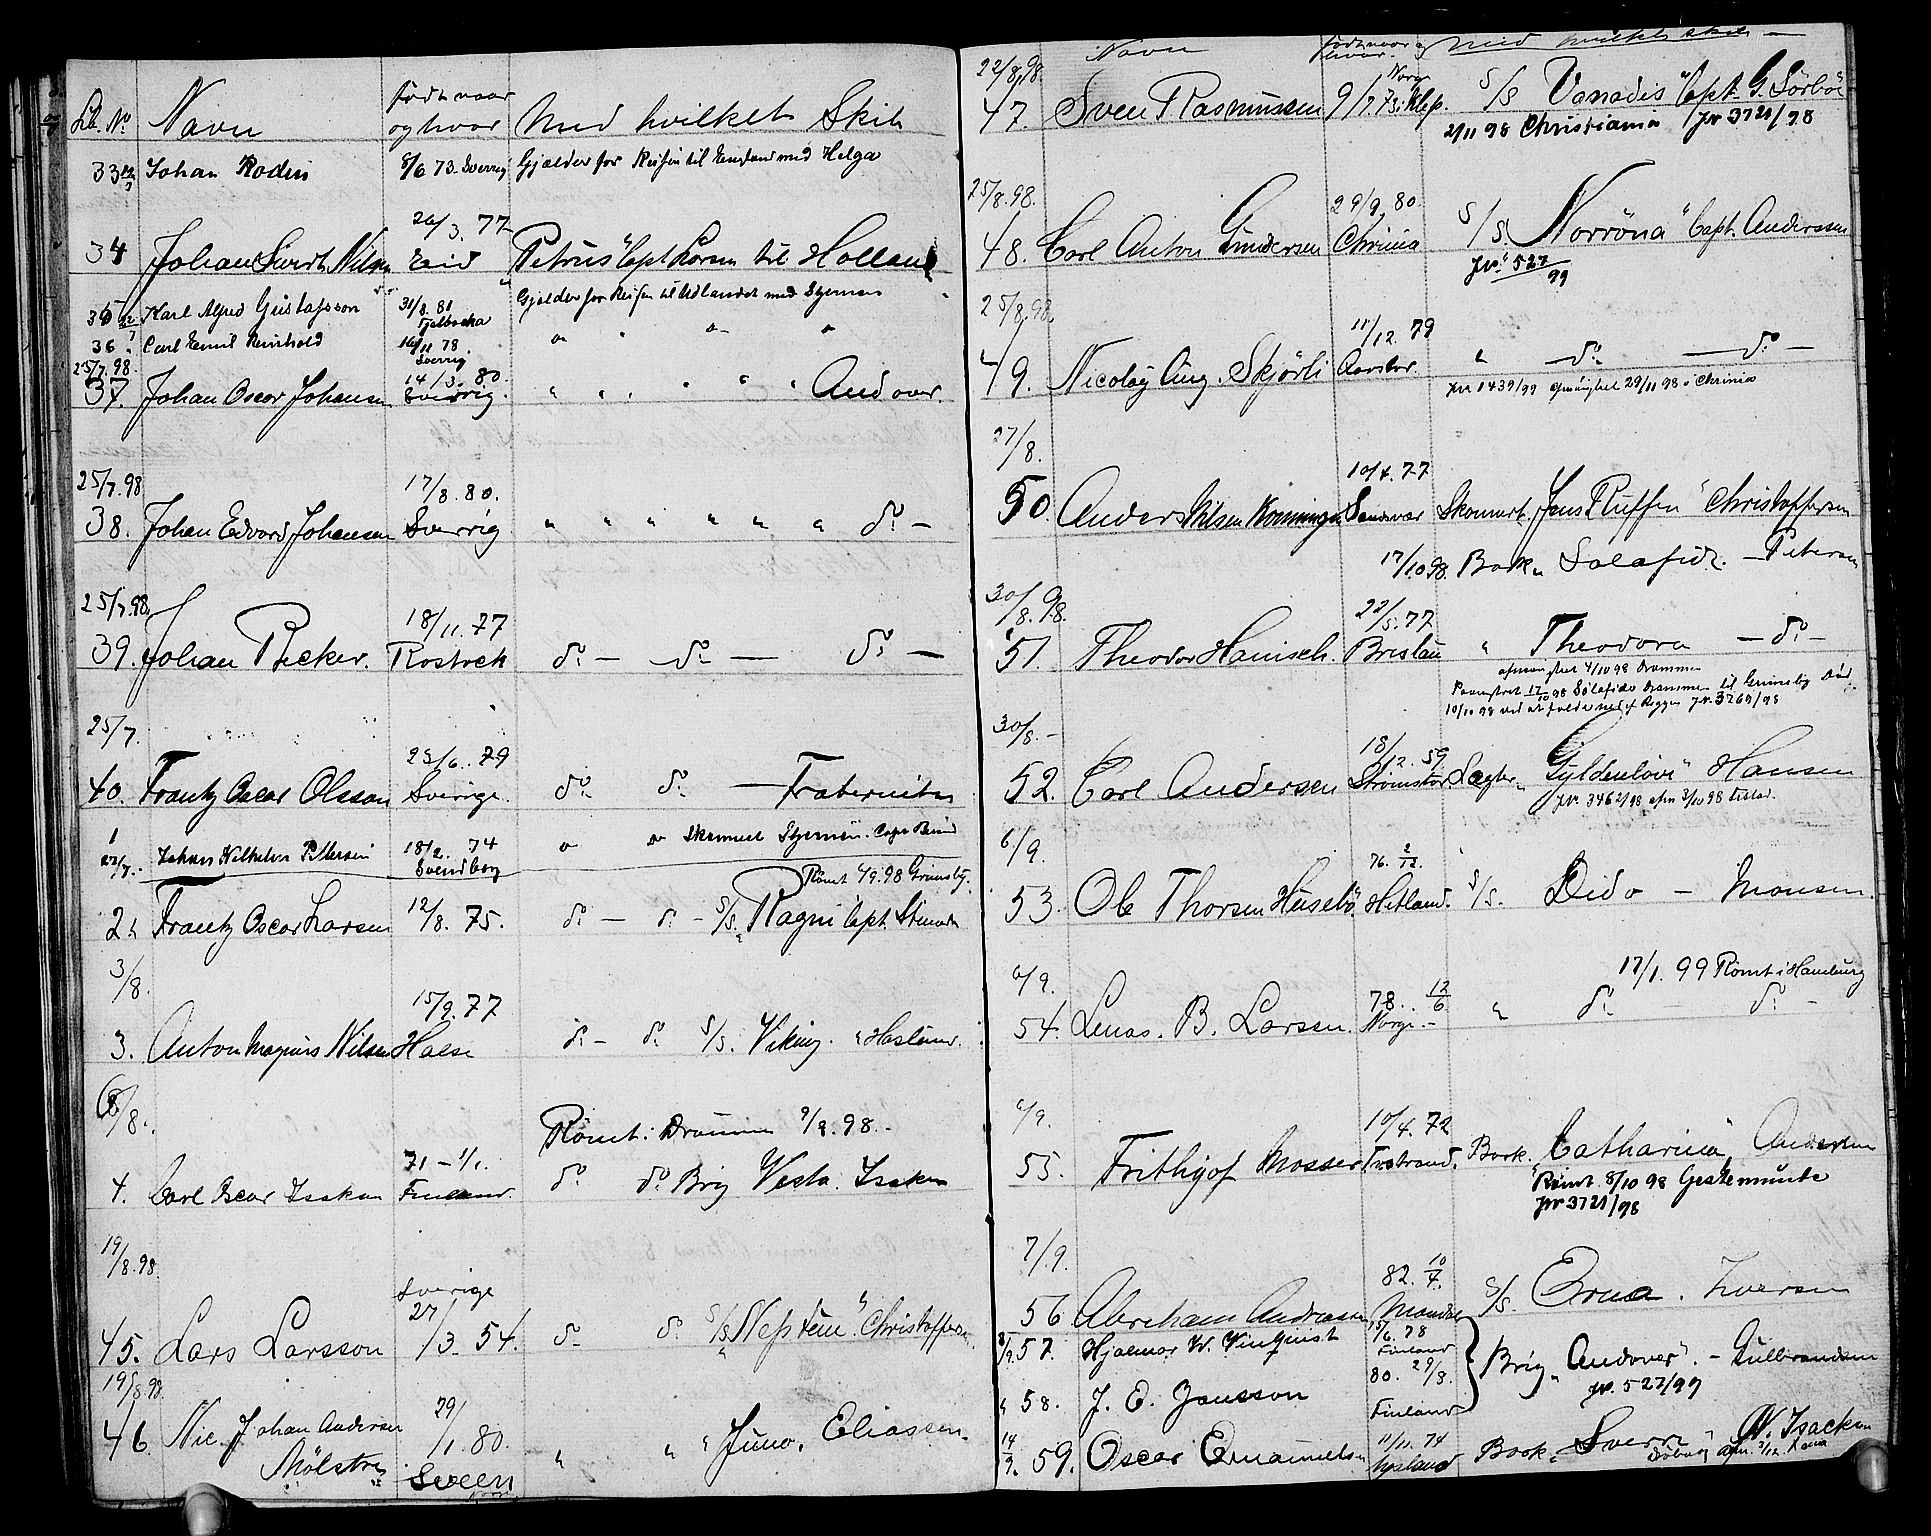 Lb. No Navn Født naar og hvor Med hvilket Skib
33 Johan Rodin 8/6 73. Sverrig Gjælder for Reisen til England med Helga
34 Johan Sivert Nilsen 26/3. 77 Eid Petrus" Capt Larsen til Holland
35 22/7 Karl Alfred Gustafsson 31/8. 81 Fjelbacka Gjelder for Reisen til Udlandet med Stjernen
36 " Carl Emil Reinhold 16/11 78. Sverrig
25/7.98.
37. Johan Oscar Johansen 14/3. 80. Sverrig. " " " " " " Andover.
25/7.98
38. Johan Edvard Johansen 17/8. 80. Sverrig " " " " " " do -
25/7.98.
39. Johan Becker. 18/11. 77 Rostock do - do - do -
25/7.
40. Frantz Oscar Olsson 23/6. 79 Sverige. do do - Fraterniten
1
27/7. Johan Wilhelm Pettersen 18/2. 74 Svendborg Skonnert Stjernen. Capt Berend
Rømt 4/9.98 Grimsby.
2. Frantz Oscar Larsen 12/8. 75. do - do - S/S. Ragni Capt.
3/8.
3. Anton Magnus Nilsen 15/9. 77 Halse do - do S/S. Viking. "Haslund.
6/8.
Rømt i Drammen 9/8. 98.
4. Carl Oscar Isaksen 71 - 1/1. Finland do do Brig Vesta. Isaksen
19/8.98.
45. Lars Larsson Sverige 27/3. 54. do do S/S "Neptun". Christoffersen
19/8.98.
46 Nic. Johan Andersen Mölstre 29/1. 80. Sveen Norge " " " Juno. Eliassen.
Navn Født naar og hvor Med hvilket skib -
22/8.98.
47. Sven Rasmussen 9/7. 73. Klep. Norge S/S Vanadis" Capt. G. Sørbøe
2/11 98 Christiania Jr 3721/98
25/8.98.
48. Carl Anton Gundersen 29/9. 80. Chrinia S/S. Norröna" Capt. Anderssen
Jr. 527/99
25/8.98.
49. Nicolay Aug. Skjörli 11/12. 79 " do - do -
Jr 1439/99 afmønstret 29/11 98 i Chrinia
27/8.
50. Anders Nilsen 10/4. 77 Skonnert. Jens Ruffen" Christoffersen
17/10 98. Bark " Solafide. - Petersen
30/8.98.
51. Theodor Hanisch. 22/5. 77 Breslau " Theodora - do -
afmønstret 4/10 98 Drammen
Paamønstret 17/10 98 Solafide Drammen til Grimsby Død
10/10 98 ved at falde ned af Riggen Jr. 3269/98
30/8. -
52. Carl Andersen 18/12. 59 Strömstad Lægter " Gyldenløve" Hansen
Jr. 3462/98 afm 3/10 98
6/9.
53. Ole Thorsen Husebö 76. 2/12. Hetland. S/S. Dido - Monsen.
6/9.
17/1. 99 Rømt i Hamburg
54. Lenas. B. Larsen. 78. 12/6 Norge. - " do - do -
6/9.
55. Frithjof Mosser 10/4. 72 Bark. "Catharina" Andersen
Rømt 8/10 98 Gestemünde
Jr 3721/98
7/9.
56 Abraham Andreassen 82. 10/7. Mandal S/S. Erna. Iversen
8/9. 57. Hjalmar W. Vinqvist 15/6. 78 Finland Brig "Andover". - Gulbrandsen
" 58. J. E. Jansson 80. 29/8. Finland Jr. 527/99
14/9. 59. Oscar Emanuelsen 11/11. 74 Bark. "Sverre" N. Isacksen